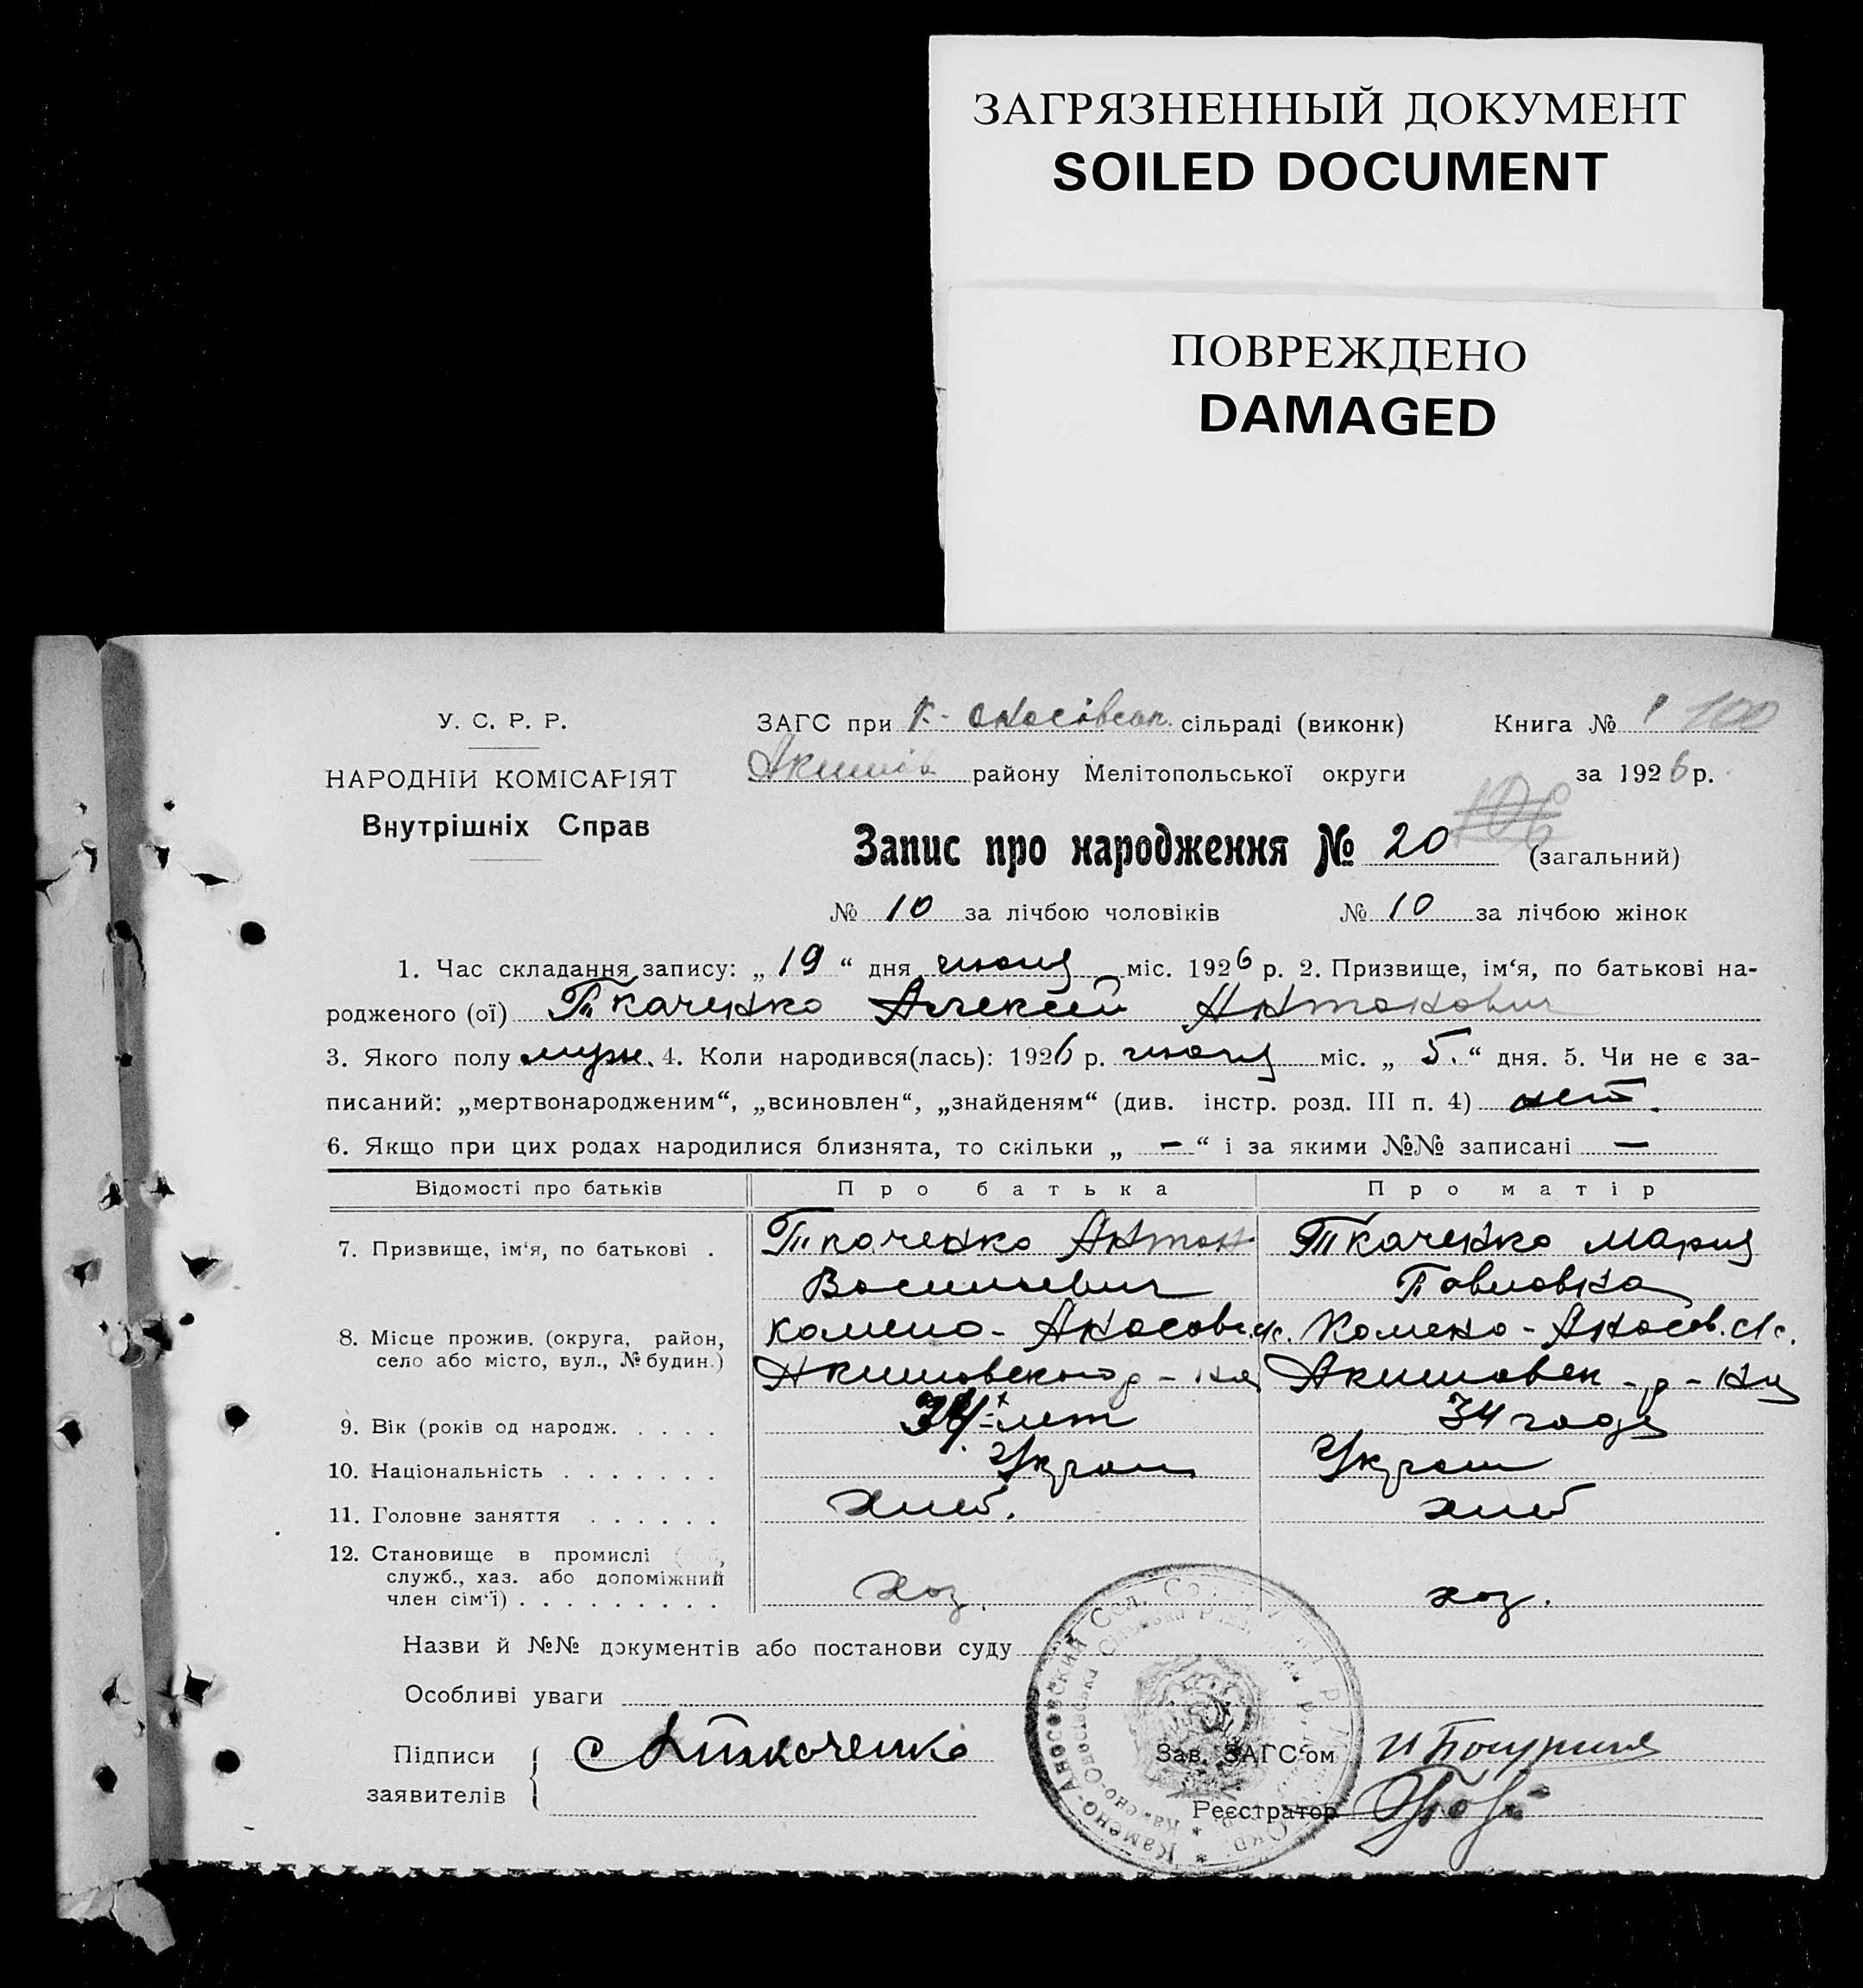 ЗАГРЯЗНЕННЫЙ ДОКУМЕНТ
SOILED DOCUMENT
ПОВРЕЖДЕНО
DAMAGED
У. С. Р. Р.
НАРОДНІЙ КОМІСАРІЯТ
Внутрішніх Справ
ЗАГС при К.- сільраді (виконк)
Книга № 1 100
Акимів району Мелітопольської округи
за 1926 р.
Запис про народження № 20 106 (загальний)
№ 10 за лічбою чоловіків № 10 за лічбою жінок
1. Час складання запису: „ 19 “ дня июля міс. 1926 р. 2. Призвище, ім‘я, по батькові на-
родженого (ої) Ткаченко Алексей Антонович
3. Якого полу муж. 4. Коли народився(лась): 1926 р. июля міс. „ 5. “ дня. 5. Чи не є за-
писаний: „мертвонародженим“, „всиновлен“, „знайденям“ (див. інстр. розд. III п. 4) нет.
6. Якщо при цих родах народилися близнята, то скільки „ — “ і за якими №№ записані —
Відомості про батьків Про батька Про матір
7. Призвище, ім‘я, по батькові . Ткаченко Антон Ткаченко Мария
Васильевич Павловна
8. Місце прожив. (округа, район, Камено- Аносовс. с/с. Камено-Аносов. с/с.
село або місто, вул., № будин.) Акимовского р-на Акимовск-р-на
9. Вік (років од народж. . . . . лет 34 года
10. Національність . . . . . . . Украин Украин
11. Головне заняття . . . . . . хлеб. хлеб
12. Становище в промислі
служб., хаз. або допоміжний
член сім‘ї) . . . . . . . . . хоз. хоз.
Назви й №№ документів або постанови суду
Особливі уваги
Підписи
заявителів
Ткаченко
Зав. ЗАГС‘ом
Реєстратор
Камено-Аносовский Сел. Со